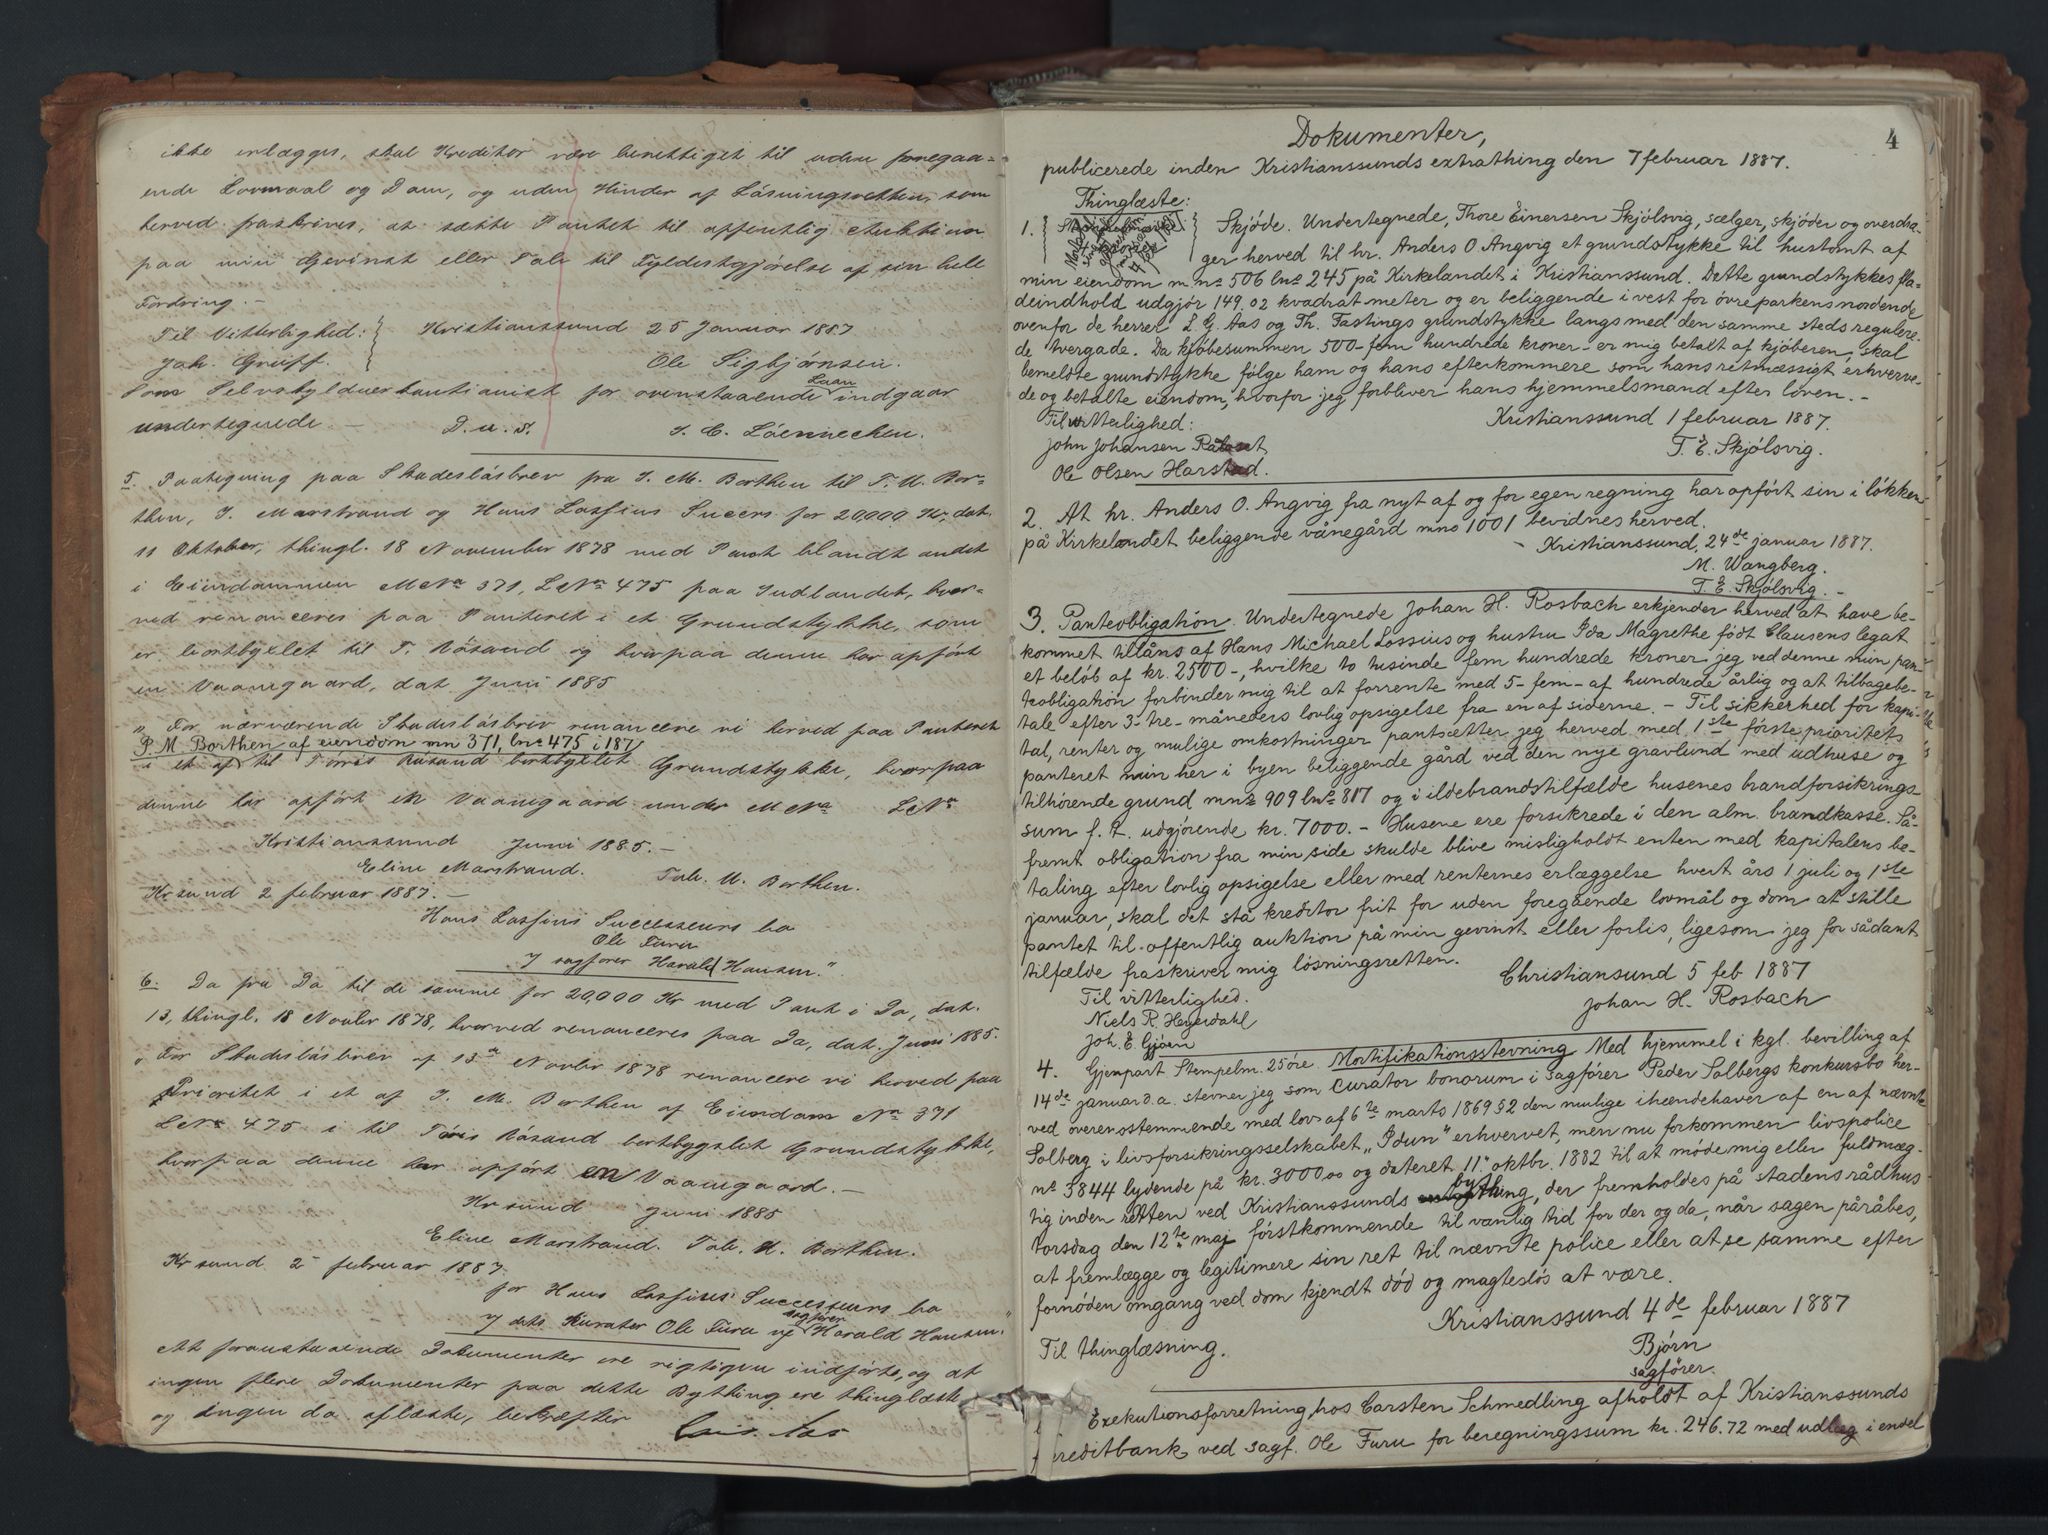 ikke erlægges, skal Kreditor være berettiget til uden foregaa-
ende Lovmaal og Dom, og uden Hinder af Løsningsretten, som
herved fraskrives, at sætte Pantet til offentlig Auktion
paa min Gevinst eller Tab til Fyldestgjørelse af sin hele
Fordring. -
Til Vitterlighed: Kristianssund 25 Januar 1887
Joh. Greiff. Ole Sigbjørnsen.
Som Selvskyldnerkautionist for ovenstaaende Laan indgaar
undertegnede. - D. u. s. J. C. Löennechen.
5. Paategning paa Skadesløsbrev fra J. M. Borthen til F. U. Bor-
then, J. Marstrand og Hans Lossius Succrs for 20,000 Kr, dat.
11 Oktober, thingl. 18 November 1878 med Pant blandt andet
i Eiendommen M No 371, L No 475 paa Indlandet, hvor-
ved renonceres paa Panteret i et Grundstykke, som
er bortbyxlet til T. Røsand og hvorpaa denne har opført
en Vaanegaard, dat Juni 1885
"For nærværende Skadesløsbrev renoncere vi herved paa Panteret
P. M. Borthen af eiendom mn 371, lno 475 i 187
i et af til Tørris Røsand bortbyxlet Grundstykke, hvorpaa
denne har opført en Vaanegaard under M No L No
Kristianssund Juni 1885. -
Eline Marstrand. Tab. U. Borthen.
Krsund 2 februar 1887. -
Hans Lossius Successeurs bo
Ole Furu
/ sagfører Harald Hansen."
6. Do fra Do til de samme for 20,000 Kr med Pant i Do, dat.
13, thingl. 18 Novbr 1878, hvorved renonceres paa Do, dat. Juni 1885.
"For Skadesløsbrev af 13de Novbr 1878 renoncere vi herved paa
Prioritet i et af J. M. Borthen af Eiendom No 371
L No 475 i til Tørris Røsand bortbygslet Grundstykke,
hvorpaa denne har opført en Vaanegaard. -
Krsund Juni 1885
Eline Marstrand. Tab. U. Borthen.
Kr sund 2 februar 1887.
for Hans Lossius' Successeurs bo
/ dets Kurator Ole Furu v/ sagfører Harald Hansen."
At foranstaaende Dokumenter ere rigtigen indførte, og at
ingen flere Dokumenter paa dette Bything ere thinglæste
og ingen da aflæste, bekræfter
4
Dokumenter,
publicerede inden Kristianssunds extrathing den 7 februar 1887.
Thinglæste:
1. Skjöde. Undertegnede, Thore Einersen Skjölsvig, sælger, skjöder og overdra-
ger herved til hr. Anders O Angvig et grundstykke til hustomt af
min eiendom m no 506 lno 245 på Kirkelandet i Kristianssund. Dette grundstykkes fla-
deindhold udgjör 149,02 kvadrat meter og er beliggende i vest for övre parkens nordende
ovenfor de herrer L. G. Aas og Th. Fastings grundstykke langs med den samme steds regulere-
de tvergade. Da kjöbesummen 500 - fem hundrede kroner - er mig betalt af kjöberen, skal
bemeldte grundstykke fölge ham og hans efterkommere som hans retmæssigt erhverve-
de og betalte eiendom, hvorfor jeg forbliver hans hjemmelsmand efter loven. -
Til vitterlighed: Kristianssund 1 februar 1887.
John Johansen T. E. Skjölsvig.
Ole Olsen Harstad.
2. At hr. Anders O. Angvig fra nyt af og for egen regning har opfört sin i lökken
på Kirkelandet beliggende vånegård mno 1001 bevidnes herved.
- Kristianssund, 24de januar 1887.
M. Wangberg.
T. E. Skjölsvig. -
3. Panteobligation. Undertegnede Johan H. Rosbach erkjender herved at have be-
kommet tillåns af Hans Michael Lossius og hustru Ida Magrethe födt Clausens legat
et belöb af kr. 2500 -, hvilke to tusinde fem hundrede kroner jeg ved denne min pan-
teobligation forbinder mig til at forrente med 5 - fem - af hundrede årlig og at tilbagebe-
tale efter 3 - tre - måneders lovlig opsigelse fra en af siderne. - Til sikkerhed for kapi-
tal, renter og mulige omkostninger pantsætter jeg herved med 1ste förste prioritets
panteret min her i byen beliggende gård ved den nye gravlund med udhuse og
tilhörende grund mno 909 lno 817 og i ildebrandstilfælde husenes brandforsikrings-
sum f. t. udgjörende kr. 7000. - Husene ere forsikrede i den alm. brandkasse. Så-
fremt obligation fra min side skulde blive misligholdt enten med kapitalens be-
taling efter lovlig opsigelse eller med renternes erlæggelse hvert års 1 juli og 1ste
januar, skal det stå kreditor frit for uden foregående lovmål og dom at stille
pantet til offentlig auktion på min gevinst eller forlis, ligesom jeg for sådant
tilfælde fraskriver mig lösningsretten. Christiansund 5 feb 1887
Til vitterlighed. Johan H. Rosbach
Niels R. Heyerdahl
Joh. E. Gjöen
4. Gjenpart Stempelm. 25 öre Mortifikationsstevning Med hjemmel i kgl. bevilling af
14de januar d. a. stevner jeg som curator bonorum i sagförer Peder Solbergs konkursbo her-
ved overensstemmende med lov af 6te marts 1869 § 2 den mulige ihændehaver af en af nævnte
Solberg i livsforsikringsselskabet "Idun" erhvervet, men nu forkommen livspolice
no 3844 lydende på kr. 3000.00 og dateret 11. oktbr. 1882 til at möde mig eller fuldmæg-
tig inden retten ved Kristianssunds bything, der fremholdes på stadens rådhus
torsdag den 12te maj förstkommende til vanlig tid for der og da, når sagen påråbes,
at fremlægge og legitimere sin ret til nævnte police eller at se samme efter
fornöden omgang ved dom kjendt död og magteslös at være.
Kristianssund 4de februar 1887
Til thinglæsning. Bjørn
sagförer.
Exekutionsforretning hos Carsten Schmedling afholdt af Kristianssunds
kreditbank, ved sagf. Ole Furu for beregningssum kr. 246.72 med udlæg i endel